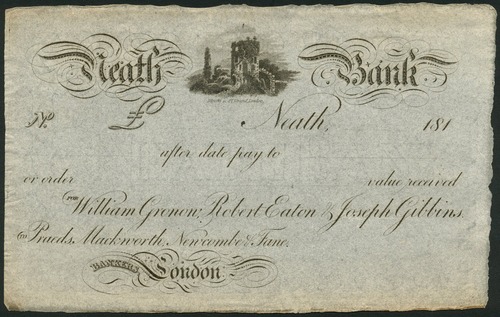 Neath Bank
No. £ Neath, 181
after date pay to
or order value received
From William Gronow, Robert Eaton & Joseph Gibbins.
To Praeds, Mackworth, Newcombe & Fane.
BANKERS London